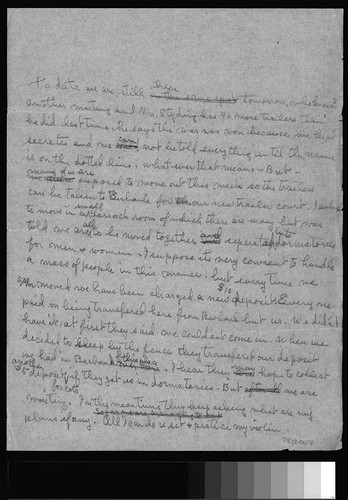 To date we are still here in the same spot tomorrow, whole
another meeting and Mr. has 40 more trailers than
he did last time. He says the war was won because we kept
secrets and we can not be told everything until the name
is on the dotted line. What ever that means - But -
many of us are supposed to move out this week so the trailers
can be taken to Burbank for our new trailer court. I
to move in a small barrack room of which there are many but was
told we are all to be moved together and separated into dormatories
for men & women. I suppose its very convient to handle
a mass of people in this manner. but every time we
are moved we have been charged a new deposit $10. Every one
paid on being transfered here from Burbank but us. We didn't
have it, at first they said we couldent come in. When we
decided to sleep by the fence they transfered our deposit
we had in Burbank. I hear they hope to collect
another $5 deposit if they get us in dormatories. But we are
waiting. In the meantime they keep asking what are my
plans if any. All I can do is sit & pratice my violin.